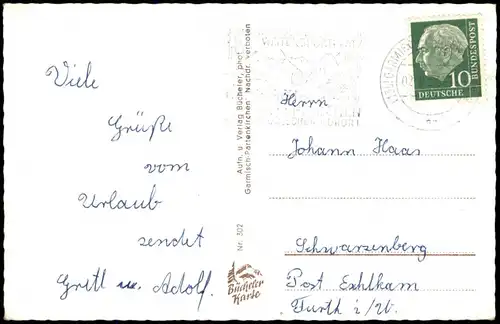 Viele
Grüße
vom
Urlaub
sendet
Gretl u. Adolf.
Aufn. u. Verlag Bücheler, phot.
Garmisch-Partenkirchen Nachdr. verboten
Nr. 302
Bücheler
Karte
10
DEUTSCHE
BUNDESPOST
Herrn
Johann Haas
Schwarzenberg
Post Eschlkam
Furth i/W.